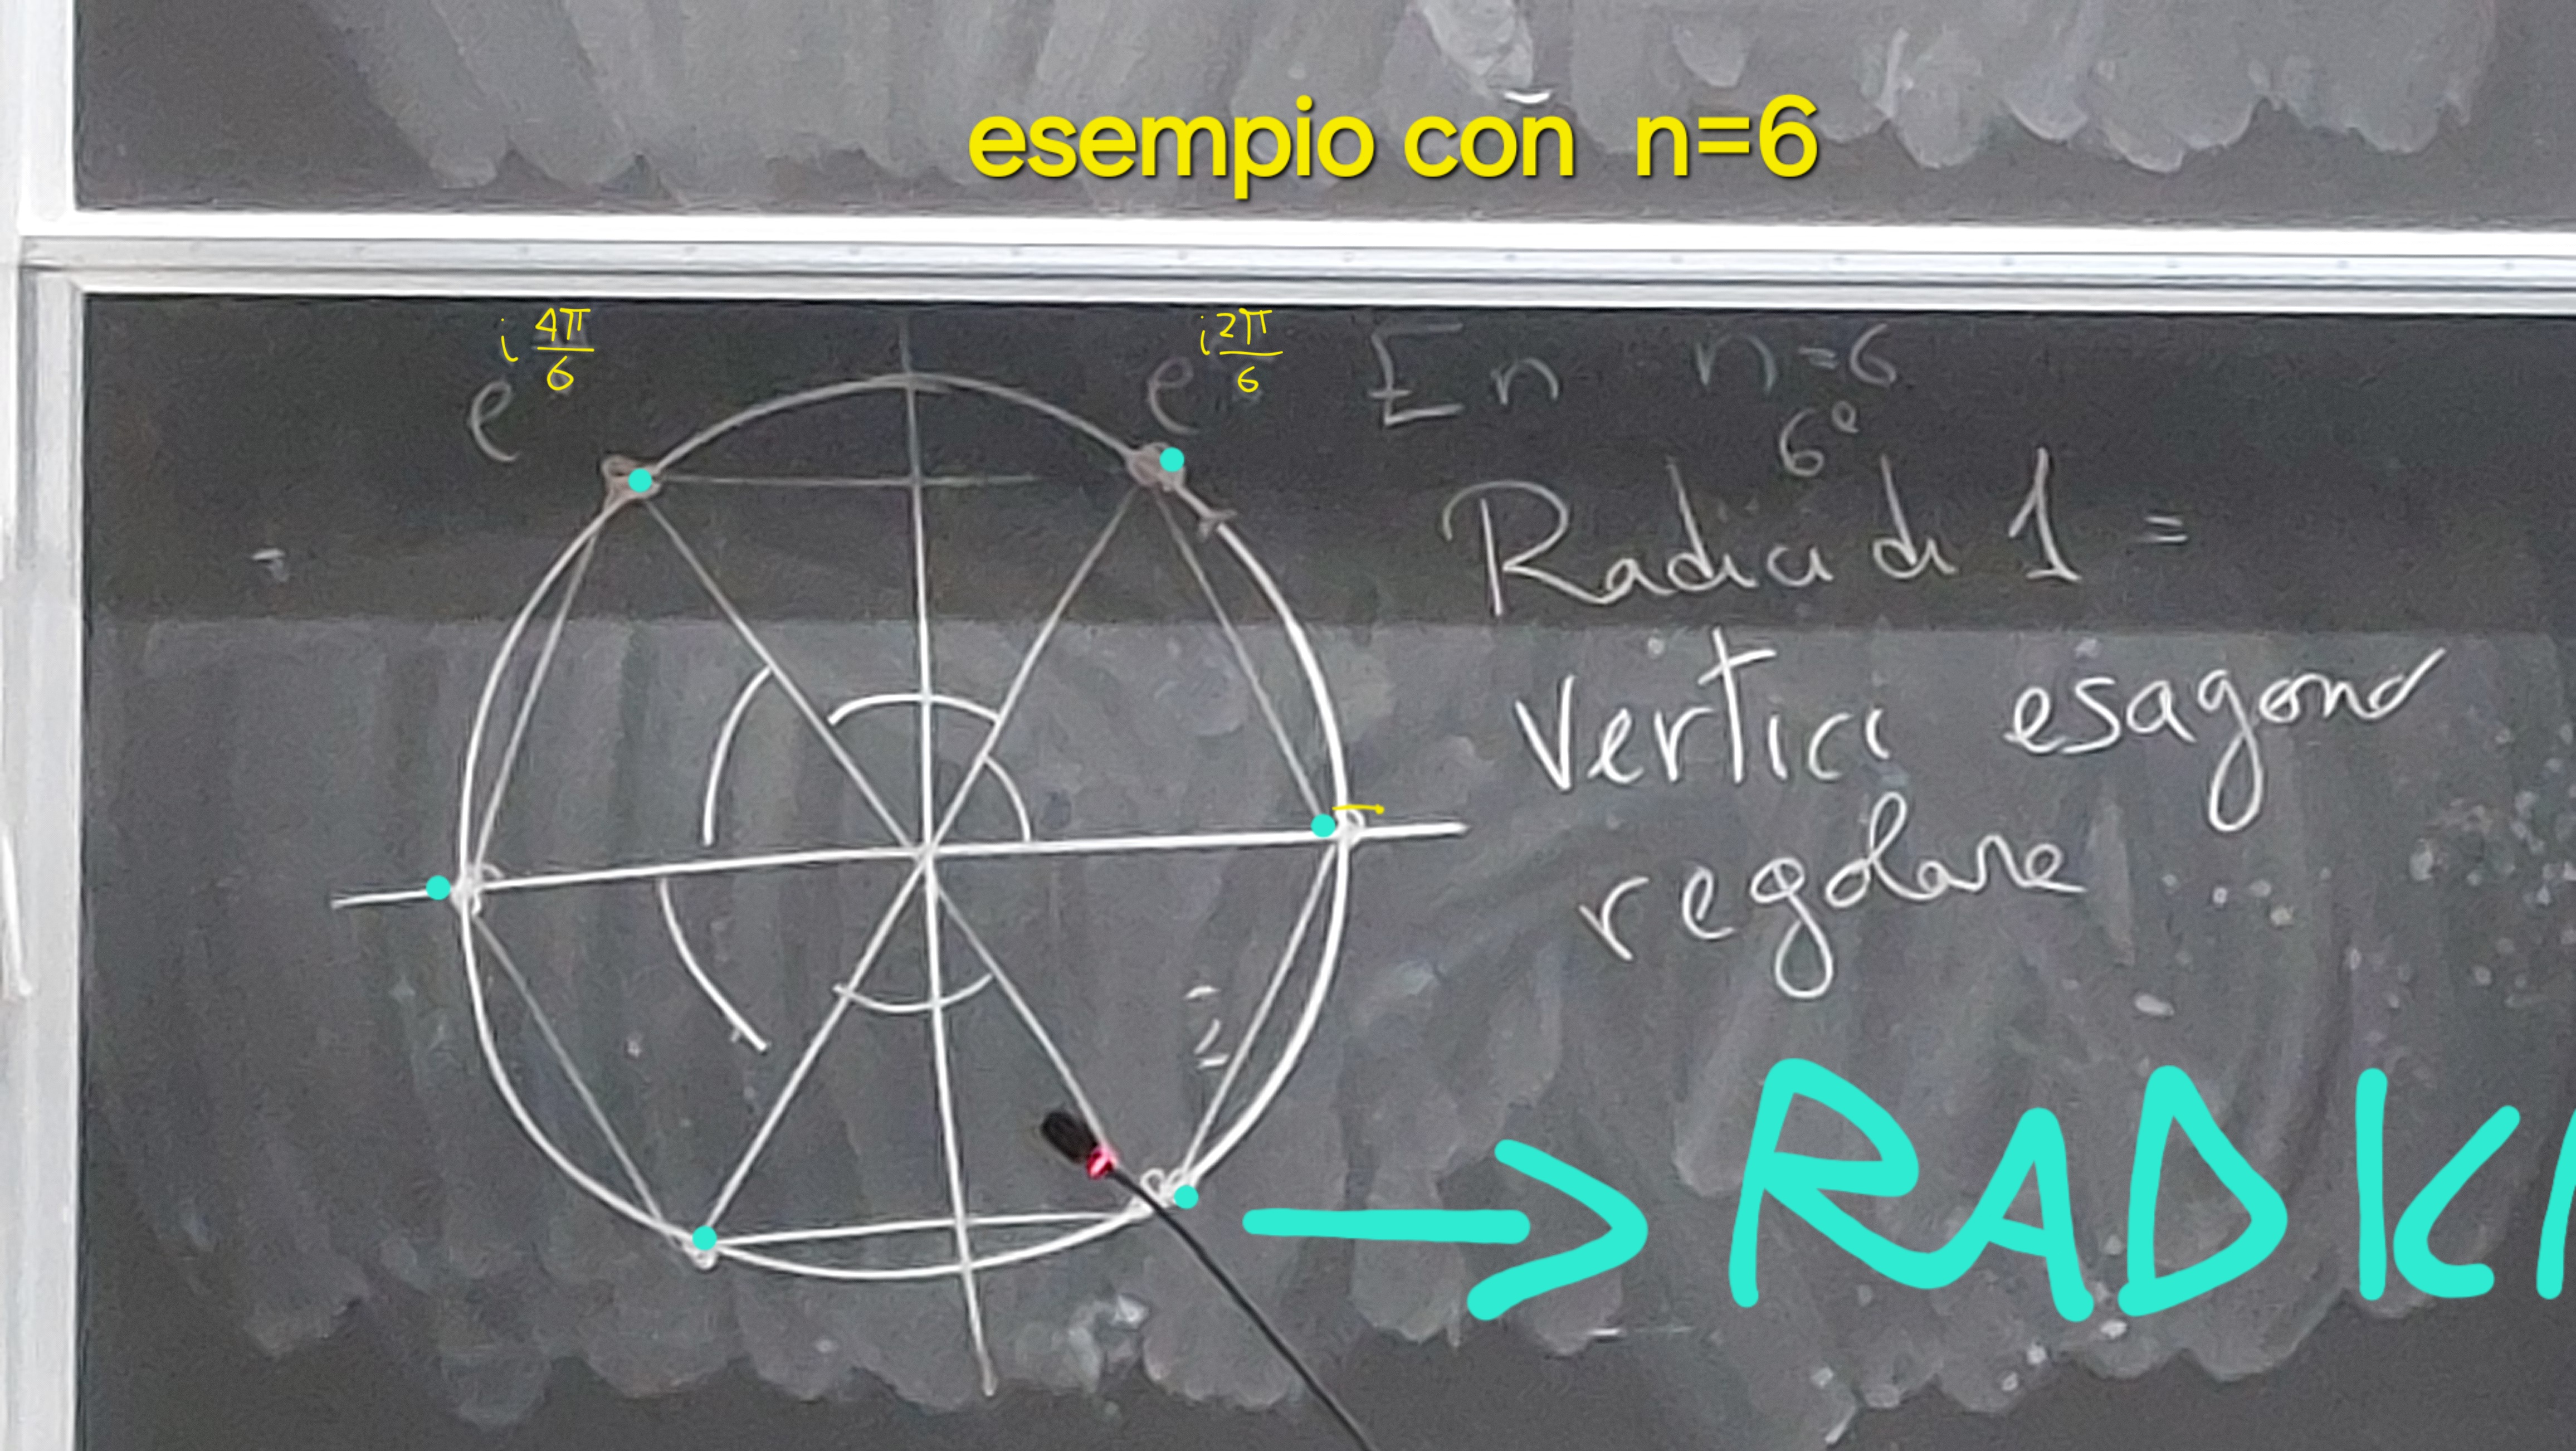 esempio con n=6
e^{i\frac{4π}{6}}
e^{i\frac{2π}{6}}
En n=6
6e
Radici di 1 =
vertici esagono
regolare
→RADICI